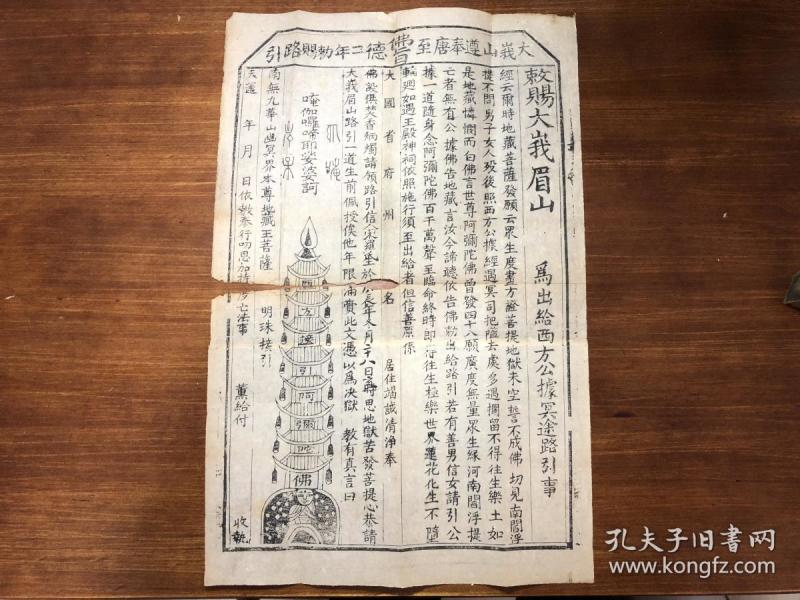 大峩山遵奉唐至德二年勅賜路引
敕賜大峩眉山 為出給西方公據冥途路引事
經云爾時地藏菩薩發願云眾生度盡方證菩提地獄未空誓不成佛切見南閻浮
提不問男子女人歿後照西方公據經過冥司把隘去處多遇攔留不得往生樂土如
是地藏憐憫而白佛言世尊阿彌陀佛曾發四十八願廣度無量眾生緣河南閻浮提
亡者無有公據佛告地藏言汝今諦聽依告佛勅出給路引若有善男信女請引公
據一道隨身念阿彌陀佛百千萬聲至臨命終時即得往生極樂世界蓮花化生不墮
輪迴如遇王殿神祠依照施行須至出給者但信善原係
大國 省 府 州 名 居住竭誠清淨奉
佛設供焚香炳燭請領路引信
月二八日 時思地獄苦發菩提心恭請
大峩眉山路引一道生前佩授俟他年限滿賫此文憑以為決獄 教有真言曰
唵伽囉啼耶娑婆訶
西方接引阿彌陀佛
南無九華山幽冥界本尊地藏王菩薩 明珠接引
天運 年 月 日依教奉行叨恩加持 亡法事 薰給付
收執
孔夫子旧书网
www.kongfz.com